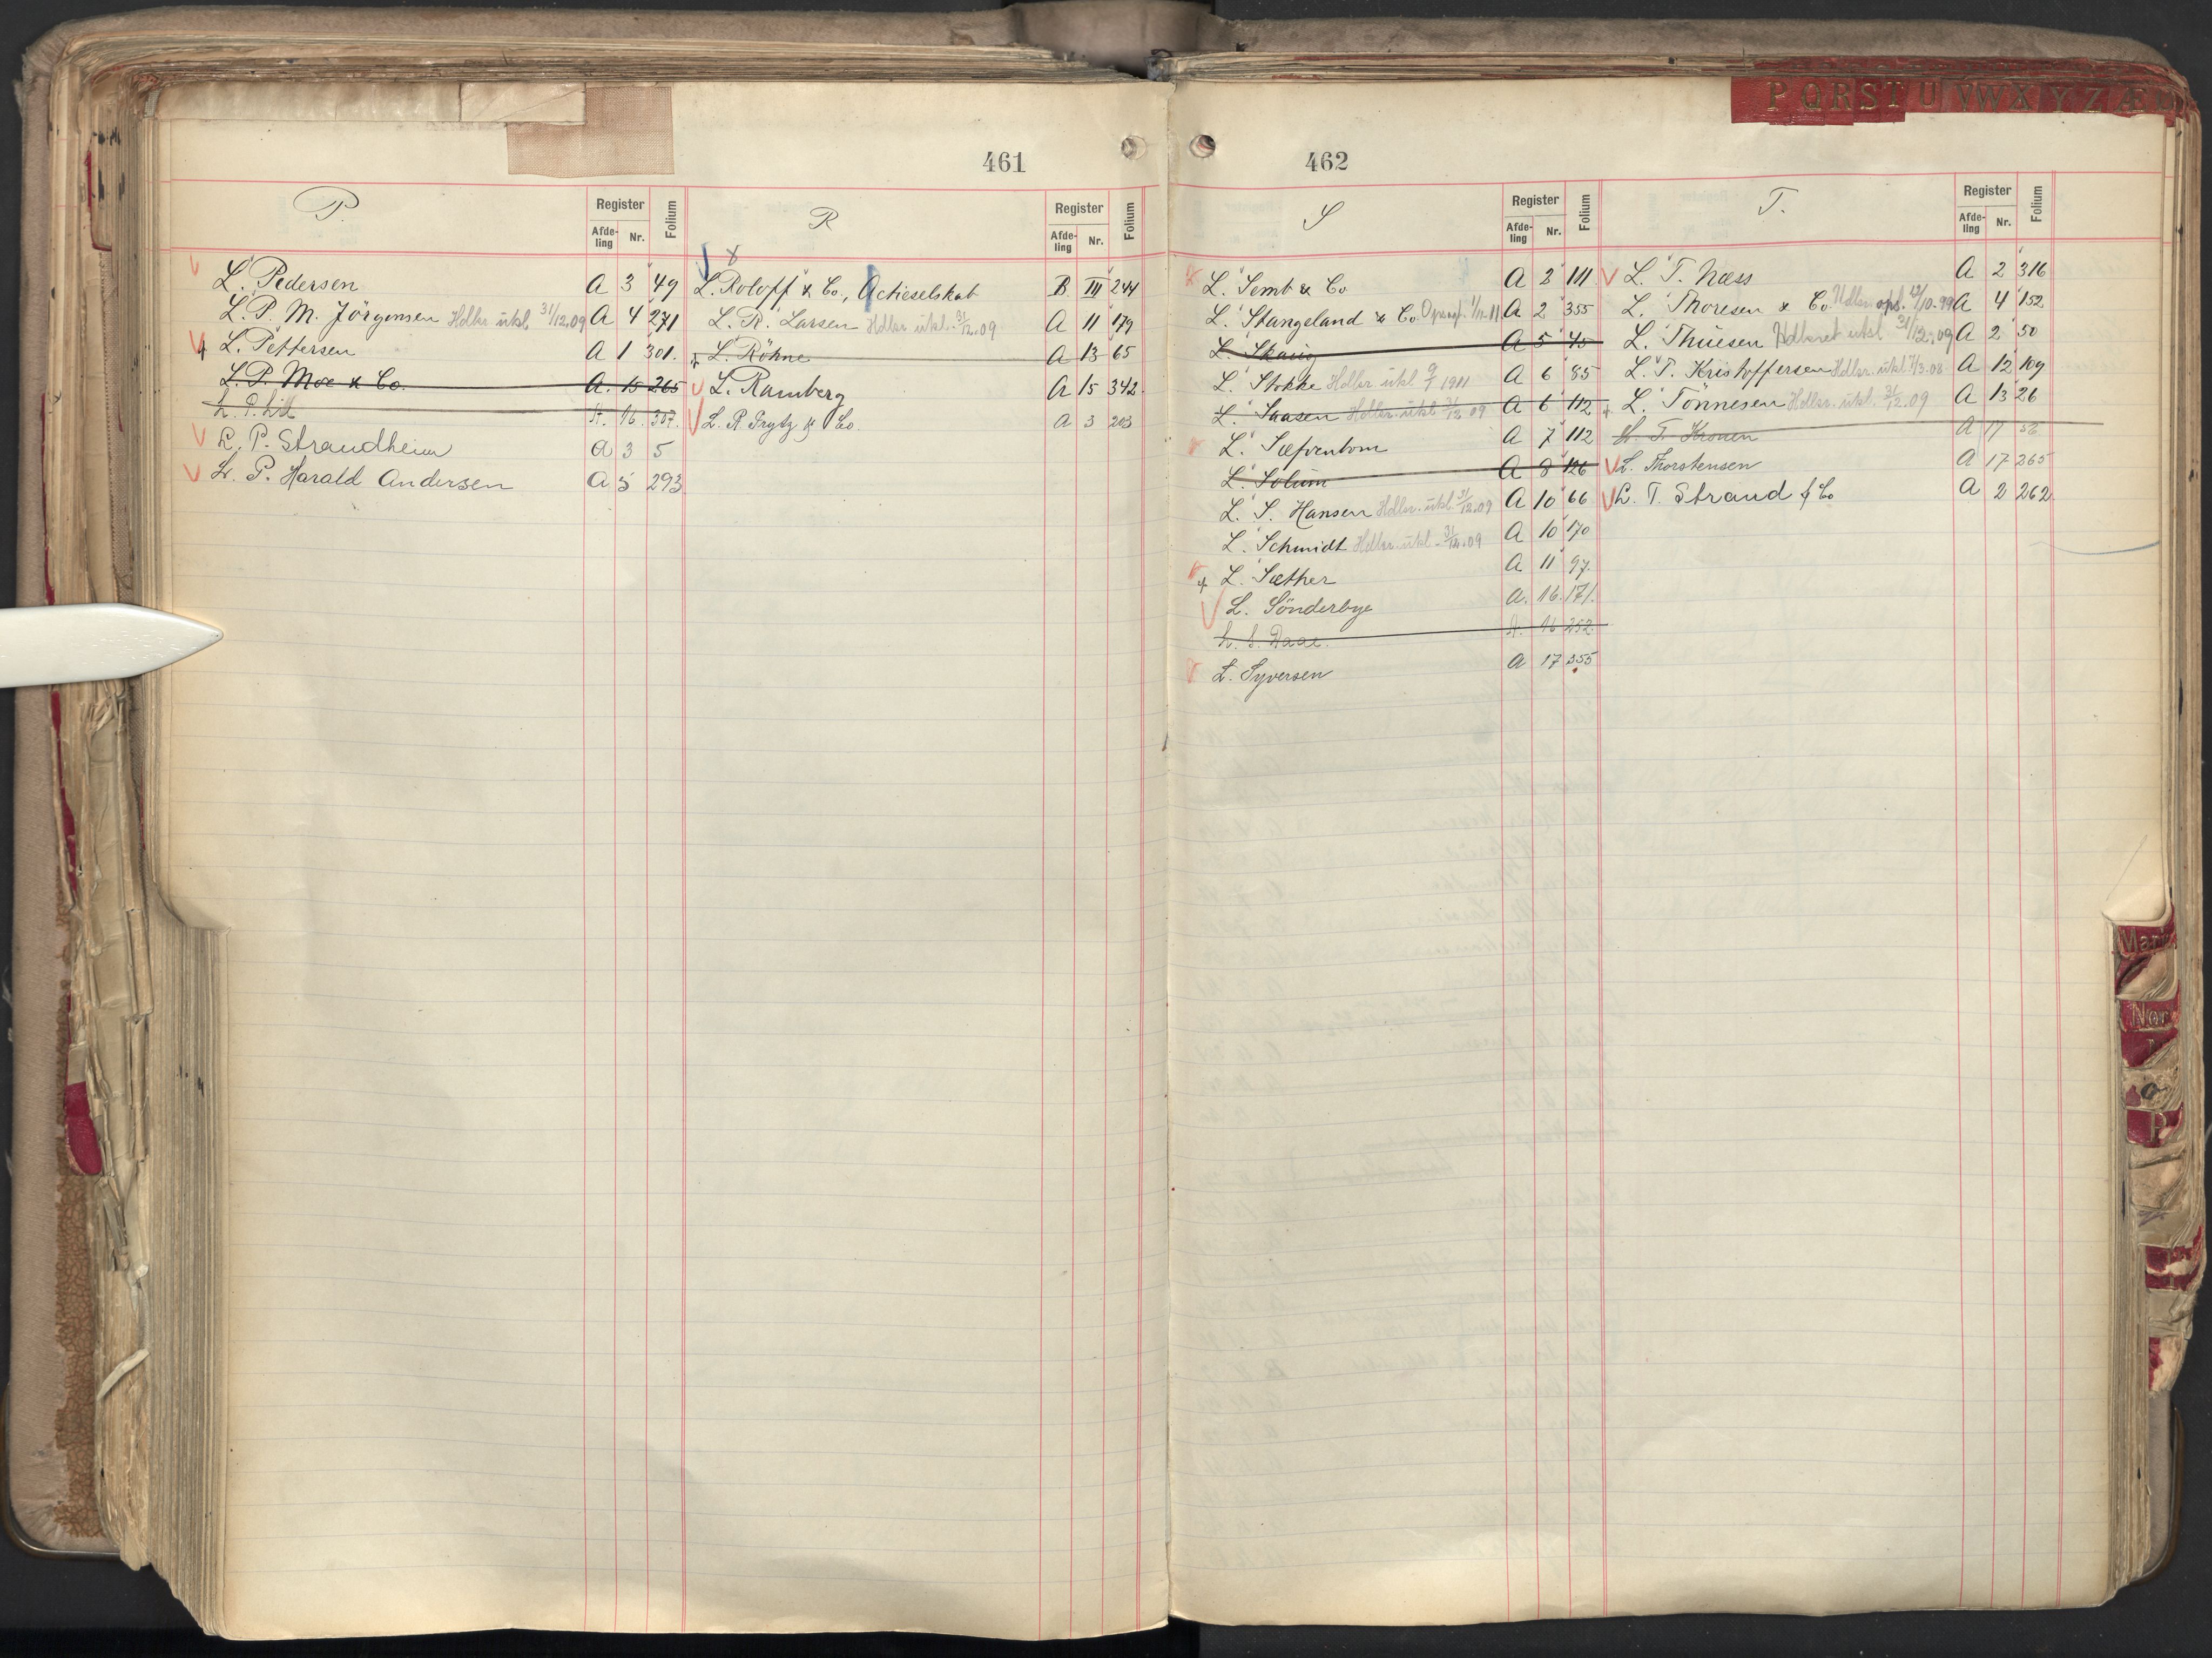 P Q R S T U V W X Y Z Æ
461
P.
Register
Afde-
ling
Nr.
Folium
L. Pedersen A 3 49
L. P. M. Jörgensen Hdlsr. utkl. 31/12.09 A 4 271
L. Pettersen A 1 301.
L. P. Moe & Co. A. 15 265
L. P. Lill A. 16. 307.
L. P. Strandheim A 3 5
L. P. Harald Andersen A 5 293
R
Register
Afde-
ling
Nr.
Folium
L. Roloff & Co., Actieselskab B. III 244
L. R. Larsen Hdlsr. utkl. 31/12.09 A 11 179
L. Röhne A 13 65
L. Ramberg A 15 342.
L. R. Prytz & Co. A 3 203
462
S
Register
Afde-
ling
Nr.
Folium
L. Semb & Co A 2 111
L. Stangeland & Co. A 2 355
L. Skaug A 5 45
L. Stokke Hdlsr. utkl. 9/7 1911 A 6 85
L. Saasen Hdlsr. utkl. 31/12 09 A 6 112
L. A 7 112
L. Solum A 8 126
L. S. Hansen Hdlsr. utkl. 31/12.09 A 10 66
L. Schmidt Hdlsr. utkl. 31/12.09 A 10 170
L. Sæther A 11 97.
L. Sönderbye A. 16. 171.
L. S. Daae. A. 16 252.
L. Syversen A 17 355
T.
Register
Afde-
ling
Nr.
Folium
L. T. Næss A 2 316
L. Thoresen & Co. A 4 152
L. Thuesen Hdlsret utkl. 31/12.09 A 2 50
L. T. Kristoffersen Hdlsr. utkl. 7/3.08 A 12 109
L. Tönnesen Hdlsr. utkl. 31/12.09 A 13 26
L. T. Kronen A 17 53
L. Thorstensen A 17 265
L. T. Strand & Co A 2 262
Nor
P